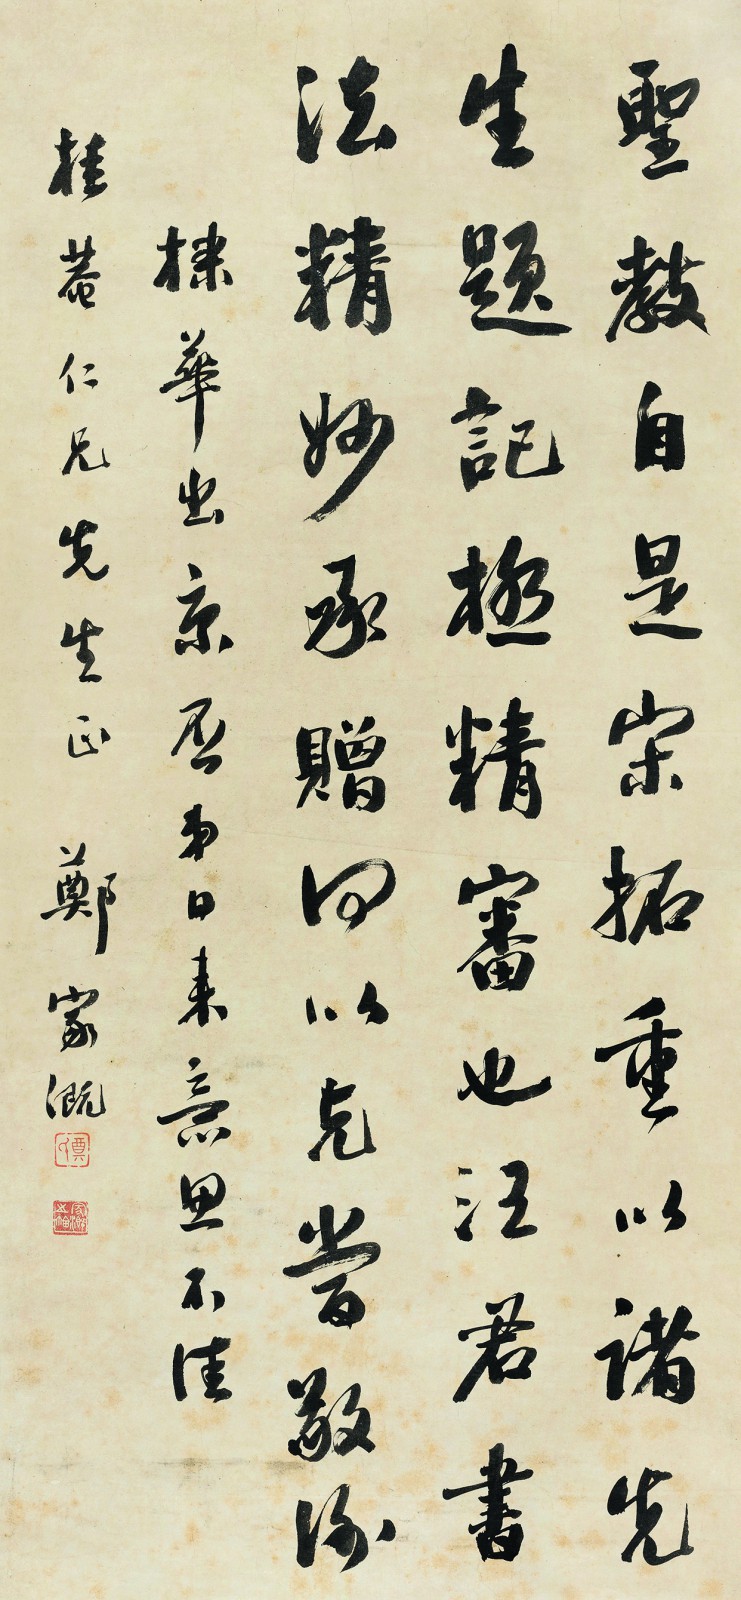 聖教自是宋拓重以諸先
生題記極精審也汪君書
法精妙承贈何以克當敬謝
華出京否弟日來意思不佳
桂菴仁兄先生正 鄭家溉